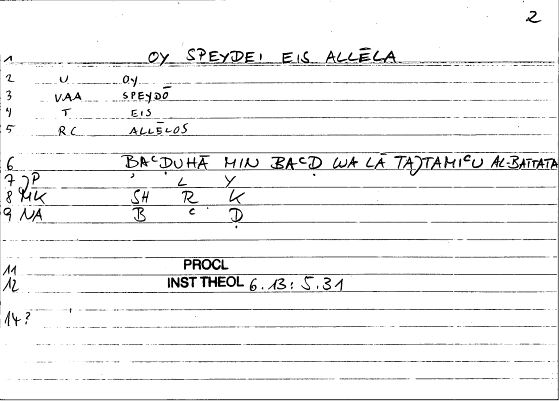 2
1 OY SPEYDEI EIS ALLĒLA
2 U OY
3 VAA SPEYDŌ
4 T EIS
5 RC ALLĒLOS
6 BAᶜḌUHĀ MIN BAᶜḌ WA LĀ TAJTAMIᶜU AL-BATTATA
7 JP ʾ L Y
8 MK SH R K
9 NA B ᶜ Ḍ
11 PROCL
12 INST THEOL 6.13: 5.31
14?